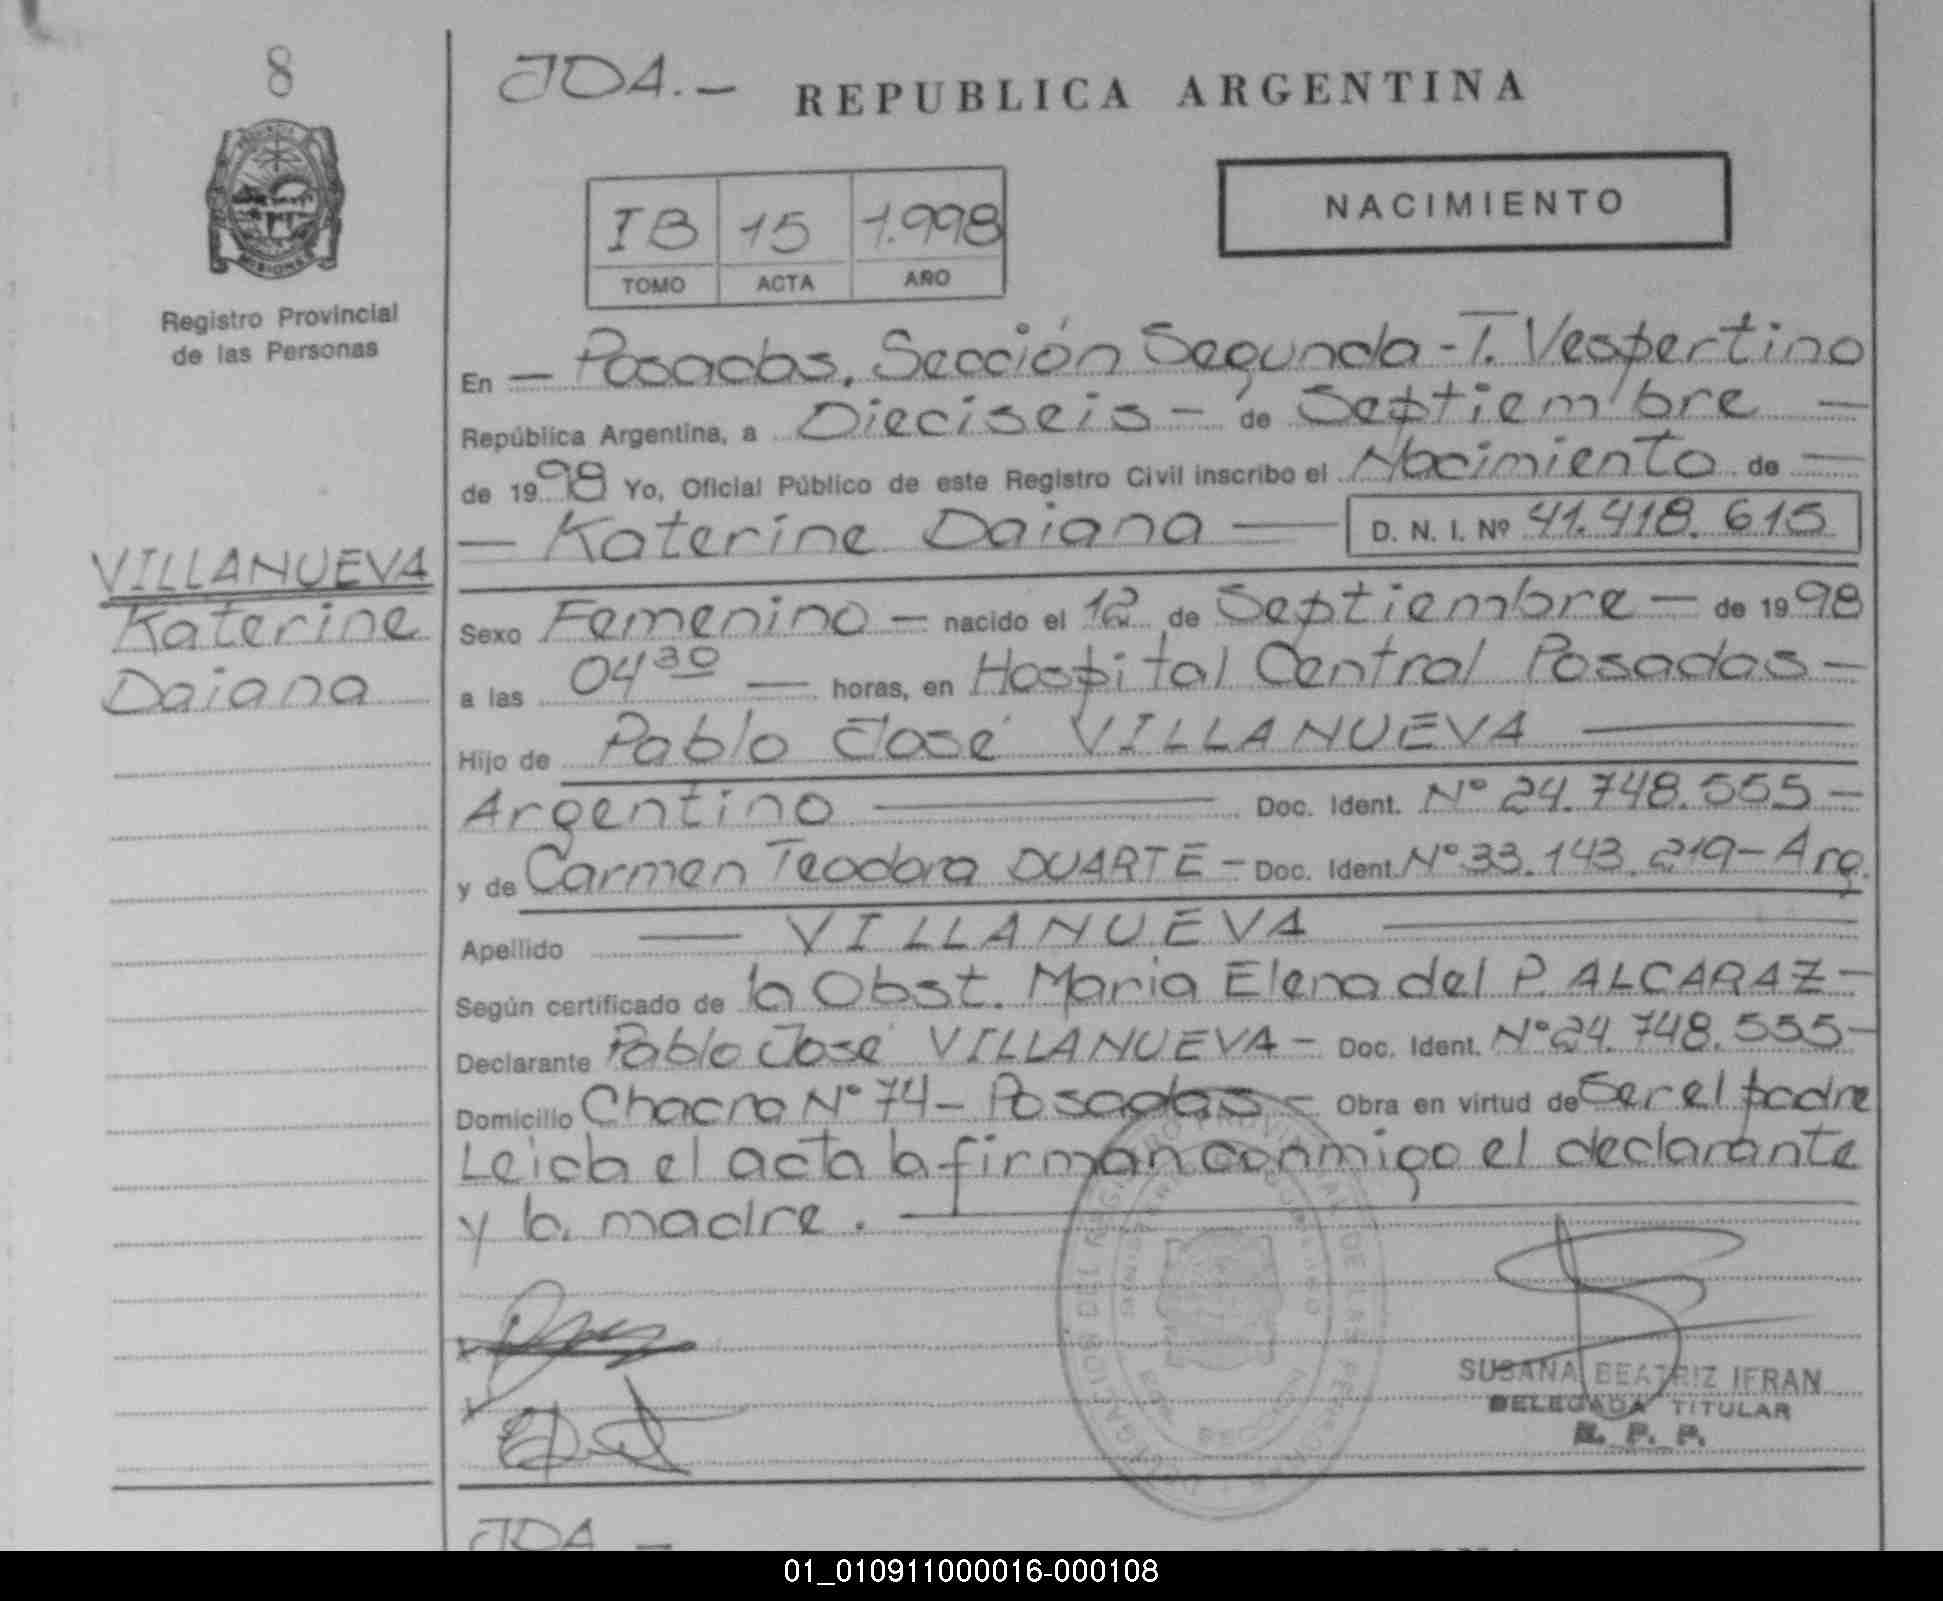 8
JDA.-
REPUBLICA ARGENTINA
IB 15 1.998
TOMO ACTA AÑO
NACIMIENTO
MISIONES
Registro Provincial
de las Personas
En — Posadas, Sección Segunda - T. Vespertino
República Argentina, a Dieciseis - de Septiembre —
de 1998 Yo, Oficial Público de este Registro Civil inscribo el Nacimiento de —
— Katerine Daiana — D. N. I. Nº 41.418.615
VILLANUEVA
Katerine
Daiana
Sexo Femenino — nacido el 12 de Septiembre — de 1998
a las 04 30 — horas, en Hospital Central Posadas —
Hijo de Pablo José VILLANUEVA —
Argentino — Doc. Ident. Nº 24.748.555 —
y de Carmen Teodora DUARTE - Doc. Ident. Nº 33.143.219 - Arg.
Apellido — VILLANUEVA —
Según certificado de la Obst. Maria Elena del P. ALCARAZ —
Declarante Pablo José VILLANUEVA - Doc. Ident. Nº 24.748.555 -
Domicilio Chacra Nº 74 - Posadas - Obra en virtud de Ser el padre
Leida el acta la firman conmigo el declarante
y la madre. —
SUSANA BEATRIZ IFRAN
DELEGADA TITULAR
R. P. P.
JDA -
01_010911000016-000108